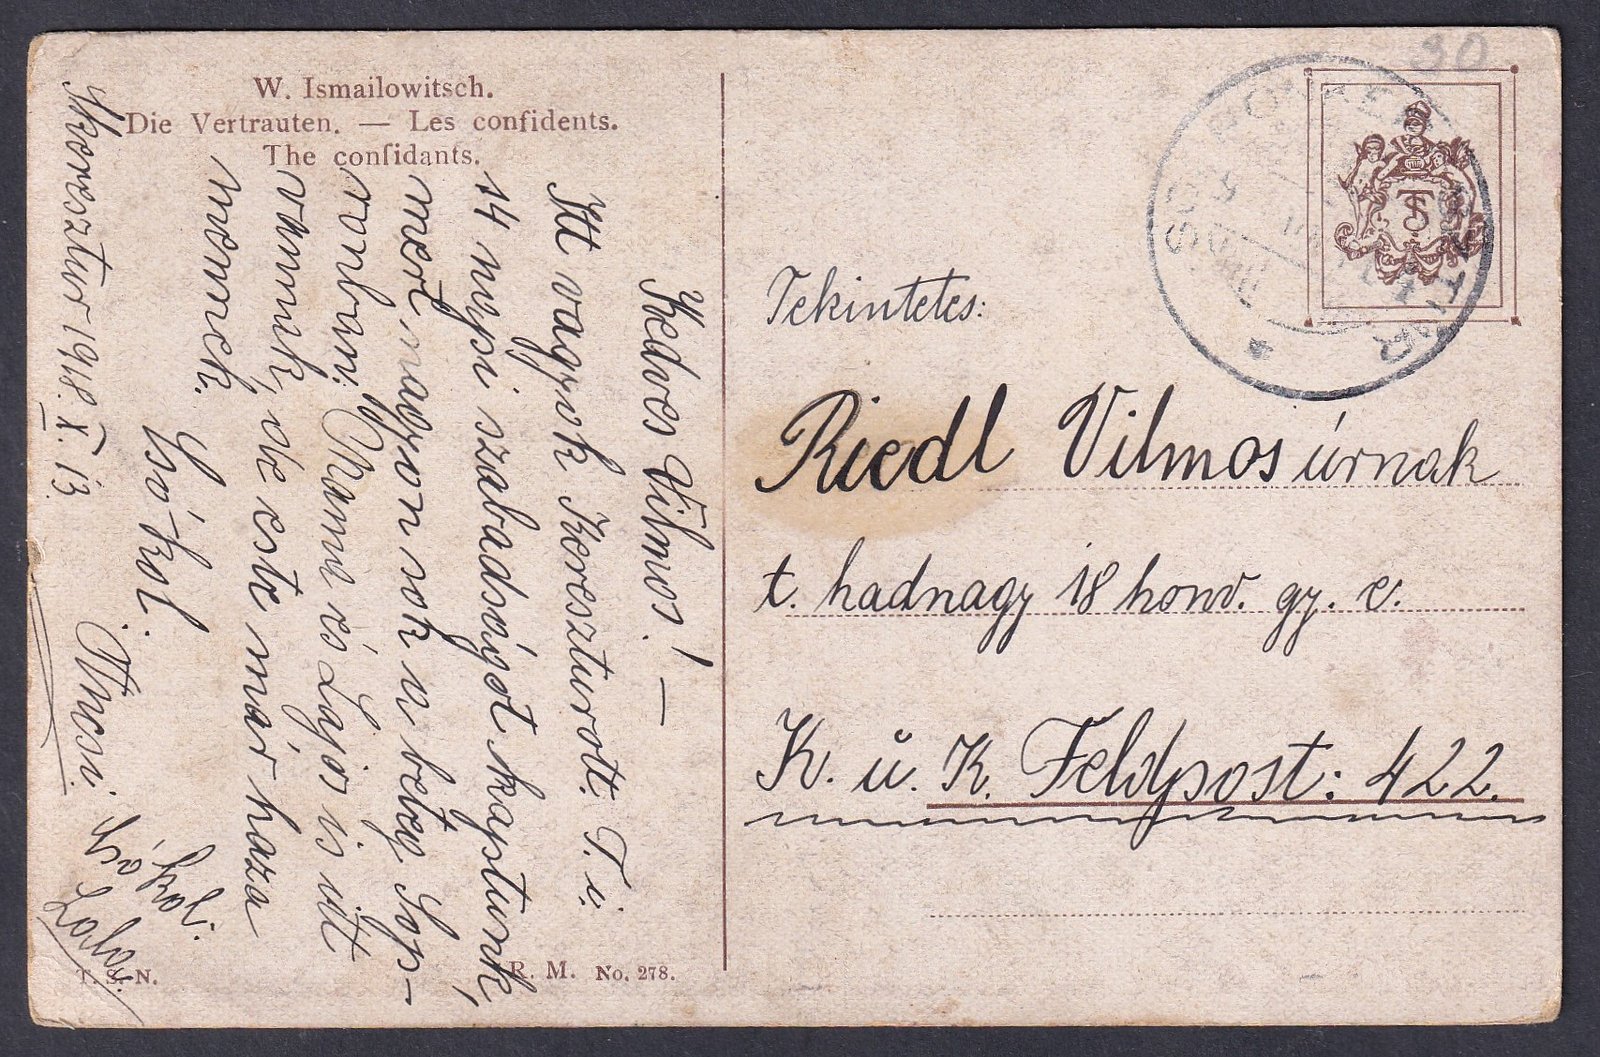 W. Ismailowitsch.
Die Vertrauten. — Les confidents.
The confidants.
Keresztur 1918. X. 13.
Kedves Vilmos! —
Itt vagyok Kereszturott. T. i.
14 napi szabadságot kaptunk,
mert nagyon sok a beteg Sop-
ronban. Mama és Lajos is itt
vannak, de este már haza
mennek.
Csó-kol
Tinosi.
Csókol.
Lajos
T. S. N.
R. M. No. 278.
90
TSN
SOPRONKERESZTUR
Tekintetes:
Riedl Vilmos úrnak
t. hadnagy 18 honv. gy. e.
K. u. K. Feldpost: 422.